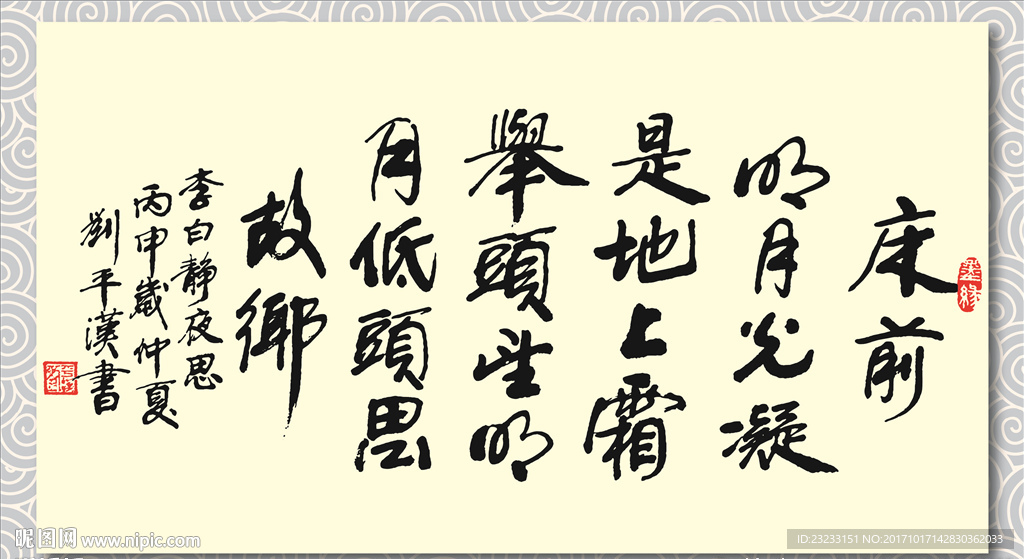 床前
明月光凝
是地上霜
舉頭望明
月低頭思
故鄉
李白静夜思
丙申歲仲夏
劉平漢書
墨緣
昵图网 www.nipic.com
ID:23233151 NO:20171017142830362033